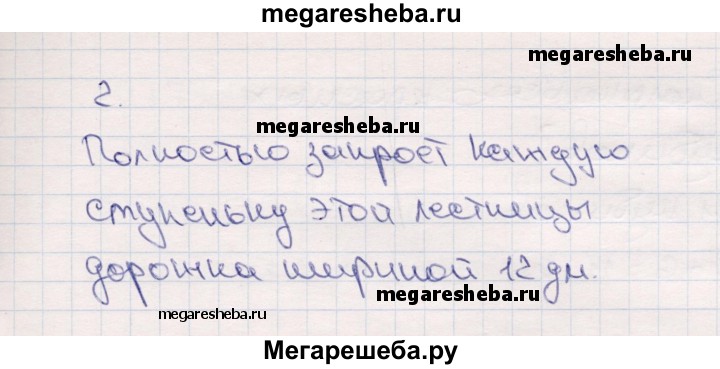 megaresheba.ru
megaresheba.ru
2.
megaresheba.ru
Полностью закроет каждую
ступеньку этой лестницы
дорожка шириной 12 дм.
megaresheba.ru
megaresheba.ru
Мегарешеба.ру